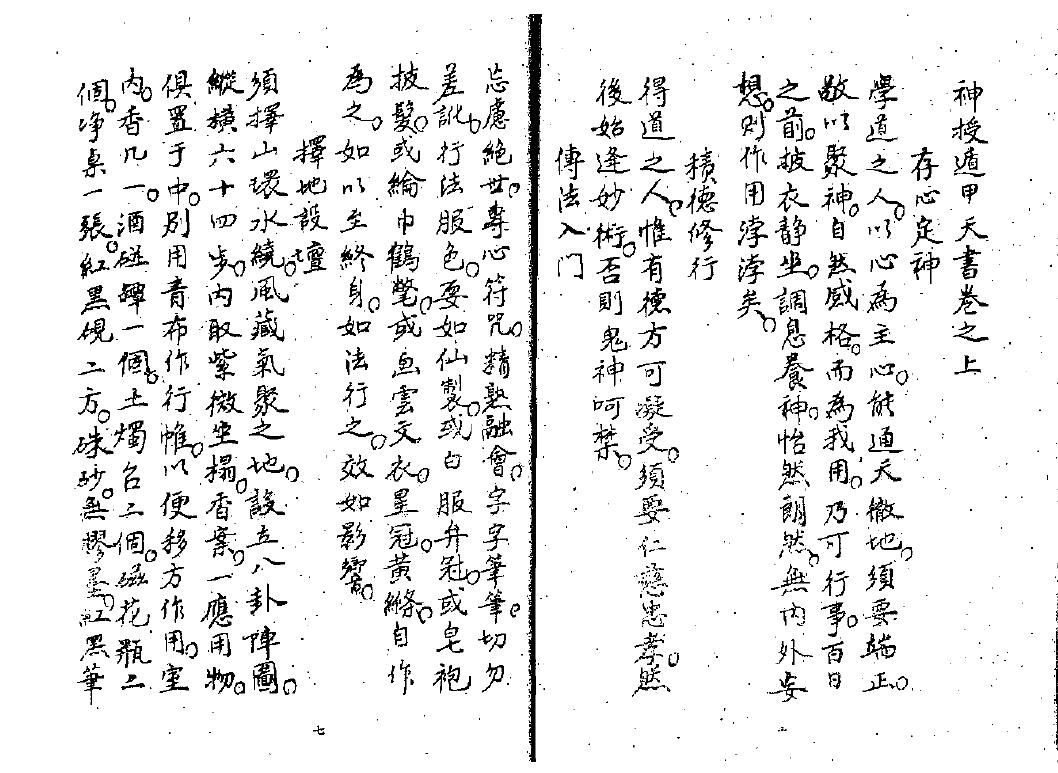 神授遁甲天書卷之上
存心定神
學道之人。以心為主。心能通天徹地。須要端正。
敬以聚神。自然感格。而為我用。乃可行事。百日
之前。披衣静坐。調息養神。怡然朗然。無内外妄
想。則作用浡浡矣。
積德修行
得道之人。惟有德方可凝受。須要仁慈忠孝。然
後始逢妙術。否則鬼神呵禁。
傳法入門
忘慮絕世。專心符咒。精熟融會。字字筆筆。切勿
差訛。行法服色。要如仙製。或白服弁冠。或皂袍
披髮。或綸巾鶴氅。或魚雲文衣。星冠。黃縧。自作
為之。如以至終身。如法行之。效如影響。
擇地設壇
須擇山環水繞。風藏氣聚之地。設立八卦陣圖。
縱橫六十四步。内取紫微坐榻。香案。一應用物。
俱置于中。別用青布作行帷。以便移方作用。室
内。香几一。酒碰罇一個。土燭台二個。磁花瓶二
個。净桌一張。紅黑硯二方。硃砂。無膠墨。紅黑筆
七